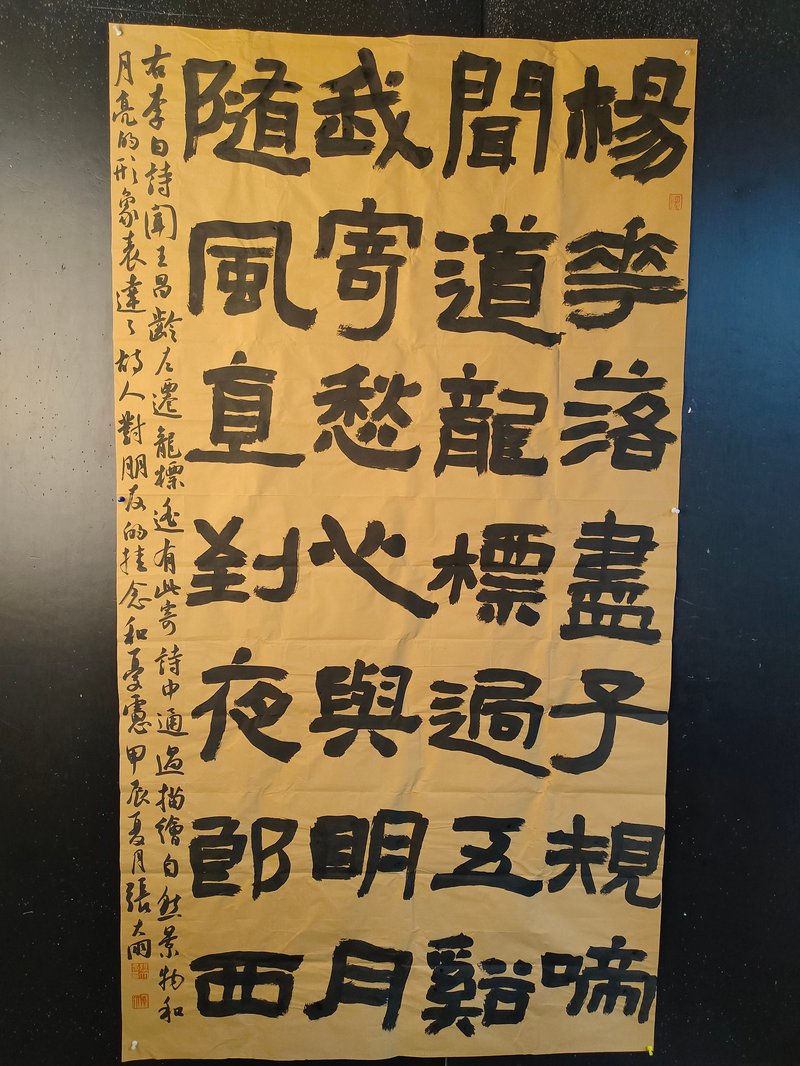 楊華落盡子規啼
聞道龍標過五谿
我寄愁心與明月
隨風直到夜郎西
右李白詩聞王昌齡左遷龍標遙有此寄詩中通過描繪自然景物和
月亮的形象表達了故人對朋友的挂念和憂慮甲辰夏月張大